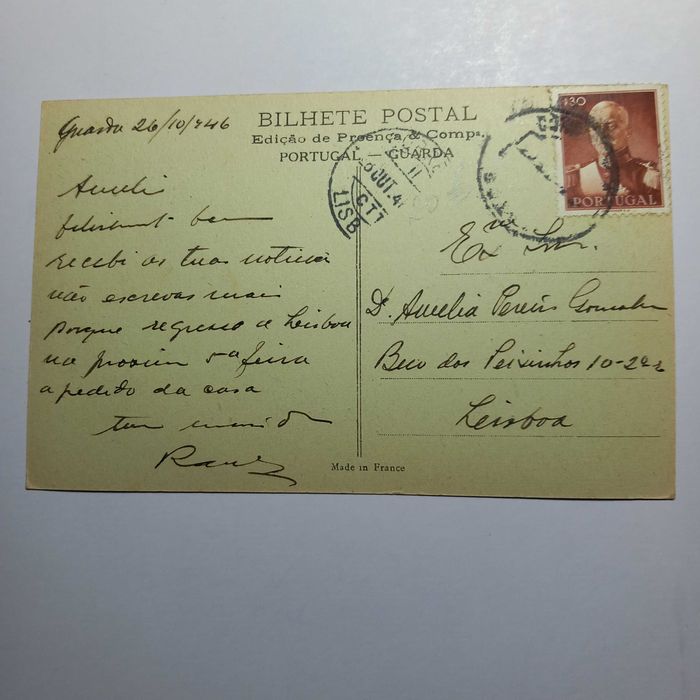 Guarda 26/10/946
BILHETE POSTAL
Edição de Proença & Compª.
PORTUGAL — GUARDA
LISB
OUT.4
CTT
$30
PORTUGAL
Aurelia
felizment bem
recebi as tuas noticia
não escrevas mais
porque regresso a Lisboa
na proxim 5ª feira
a pedido da casa
teu marido
Raul
Exª Snr.
D. Aurelia Pereis Gonsalve
Beco dos Peixinhos 10-2º
Lisboa
Made in France